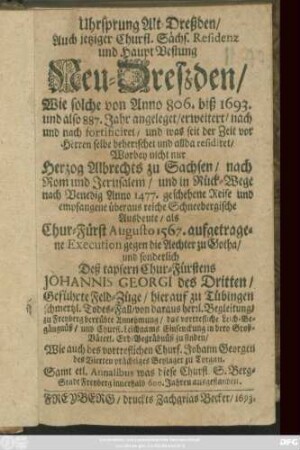 Uhrsprung Alt-Dreßden/
Auch jetziger Churfl. Sächs. Residenz
und Haupt Vestung
Neu-Dreßden/
Wie solche von Anno 806. biß 1693.
und also 887. Jahr angeleget/ erweitert/ nach
und nach fortificiret/ und was seit der Zeit vor
Herren selbe beherrschet und allda residiret/
Worbey nicht nur
Herzog Albrechts zu Sachsen/ nach
Rom und Jerusalem/ und in Rück-Wege
nach Venedig Anno 1477. geschehene Reise und
empfangene überaus reiche Schneebergische
Ausbeute/ als
Chur-Fürst Augusto 1567. aufgetrage-
ne Execution gegen die Aechter zu Gotha/
und sonderlich
Deß tapfern Chur-Fürstens
JOHANNIS GEORGI des Dritten/
Geführte Feld-Züge/ hierauf zu Tübingen
schmertzl. Todes-Fall/ von daraus herrl. Begleitung
zu Freyberg berühte Annehmung/ das vortreffliche Leich-Be-
gängnüß/ und Churfl. Leichnams Einsenckung in dero Groß-
Väterl. Erb-Begräbnüß zu finden/
Wie auch des vortreflichen Churf. Johann Georgen
des Vierten prächtiges Beylager zu Torgau.
Samt etl. Annalibus was diese Churfl. S. Berg-
Stadt Freyberg innerhalb 600. Jahren ausgestanden.
FREYBERG/ druckts Zacharias Becker/ 1693.